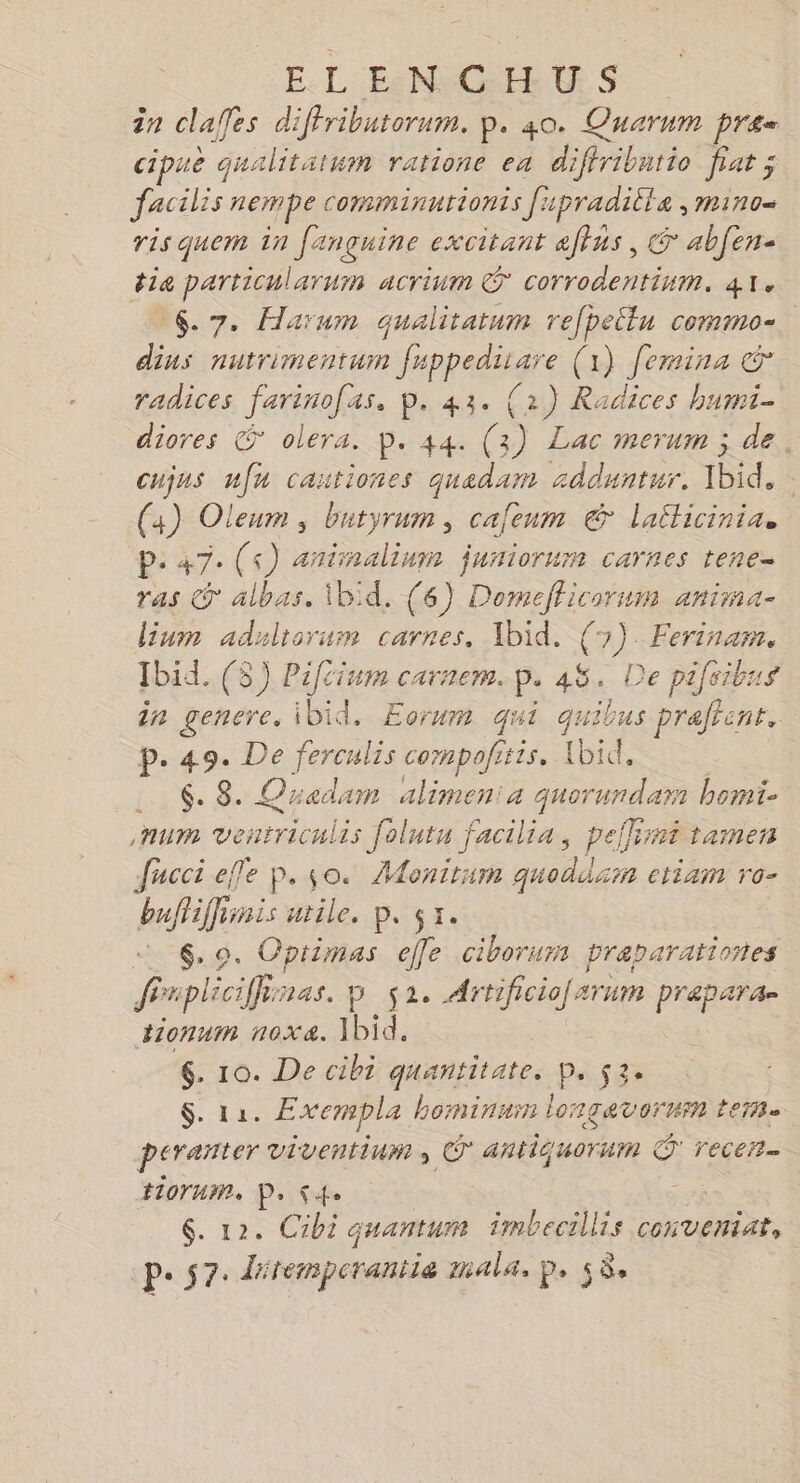 ELENCHUS
in claſſes diſtributorum. p. 40. Quarum præ-
cipuè qualitatum ratione ea diſtributio fiat;
facilis nempe comminutionis ſupradictæ, mino-
ris quem in ſanguine excitant æſtus, & abſen-
tiæ particularum acrium & corrodentium. 41.
§. 7. Harum qualitatum reſpectu commo-
dius nutrimentum ſuppeditare (1) ſemina &
radices farinoſas. p. 43. (2) Radices humi-
diores & olera. p. 44. (3) Lac merum; de
cujus uſu cautiones quædam adduntur. Ibid.
(4) Oleum, butyrum, caſeum & lacticinia.
p. 47. (5) animalium juniorum carnes tene-
ras & albas. ibid. (6) Domeſticorum anima-
lium adultorum carnes. Ibid. (7) Ferinam.
Ibid. (8) Piſcium carnem. p. 48. De piſcibus
in genere. ibid. Eorum qui quibus præſtent.
p. 49. De ferculis compoſitis. Ibid.
§. 8. Quædam alimenta quorundam homi-
num ventriculis ſolutu facilia, peſſimi tamen
ſucci eſſe p. 50. Monitum quoddam etiam ro-
buſtiſſimis utile. p. 51.
§. 9. Optimas eſſe ciborum præparationes
ſimpliciſſimas. p 52. Artificioſarum præpara-
tionum noxæ. Ibid.
§. 10. De cibi quantitate. p. 53.
§. 11. Exempla hominum longævorum tem-
peranter viventium, & antiquorum & recen-
tiorum. p. 54.
§. 12. Cibi quantum imbecillis conveniat,
p. 57. Intemperantiæ mala. p. 58.